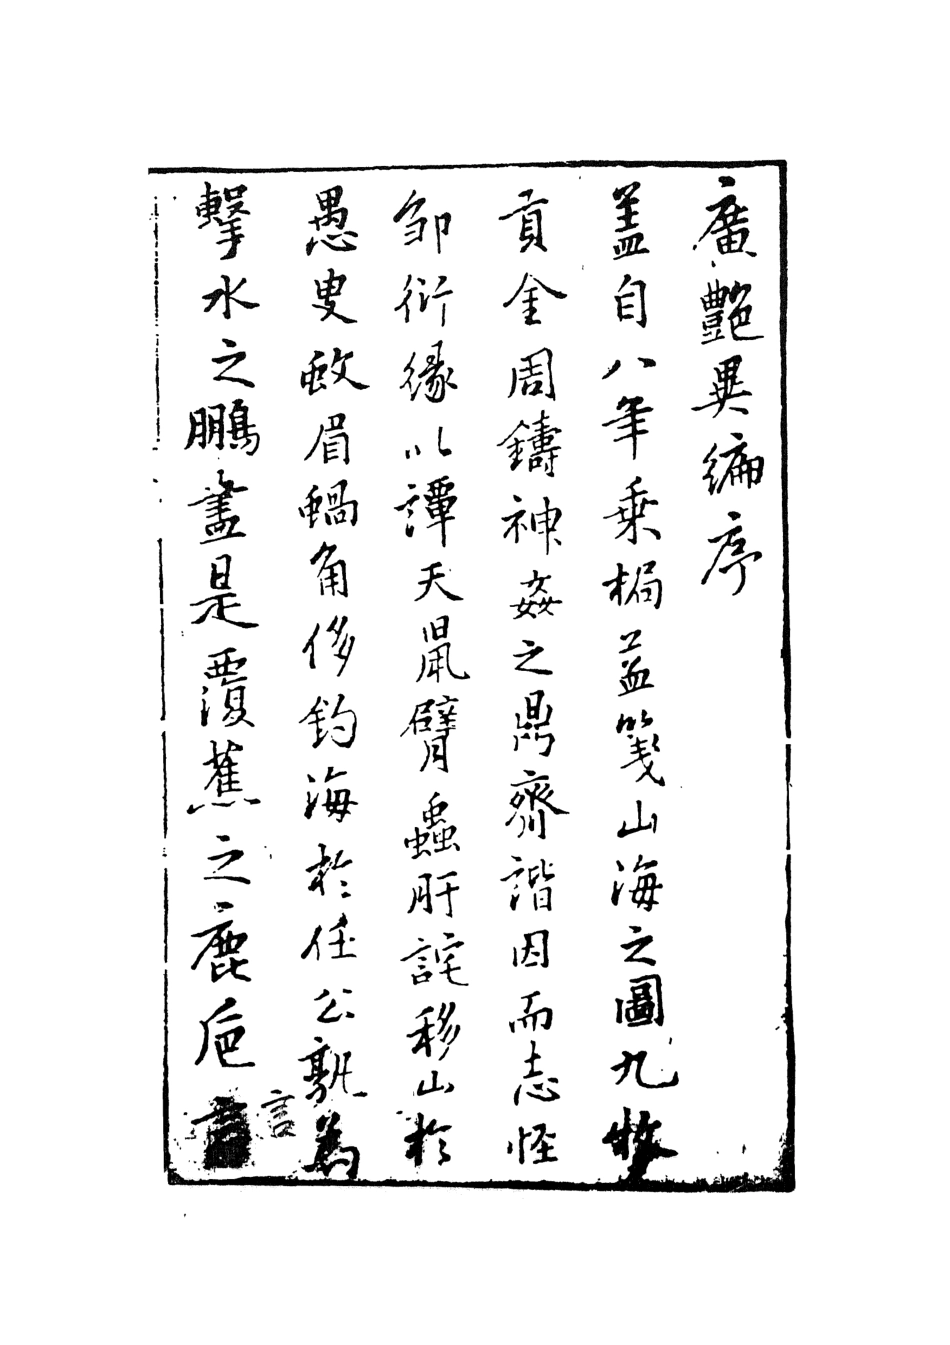 廣艷異編序
蓋自八年乗梮益箋山海之圖九牧
貢金周鑄神姦之鼎齊諧因而志怪
邹衍緣以譚天鼠臂蟲肝詫移山於
愚叟蚊眉蝸角侈釣海於任公孰為
擊水之鵬盡是覆蕉之鹿巵言
言